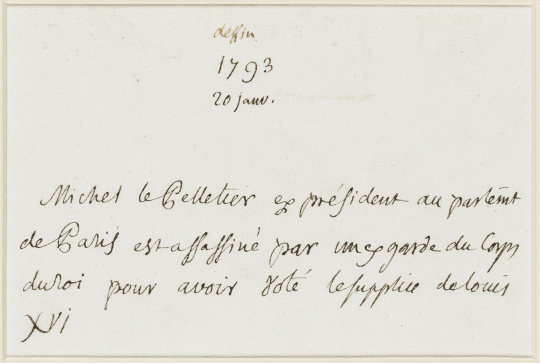 dessin
1793
20 janv.
Michel le Pelletier ex président au parlemt
de Paris est assassiné par un ex garde du Corps
du roi pour avoir voté le supplice de louis
XVI